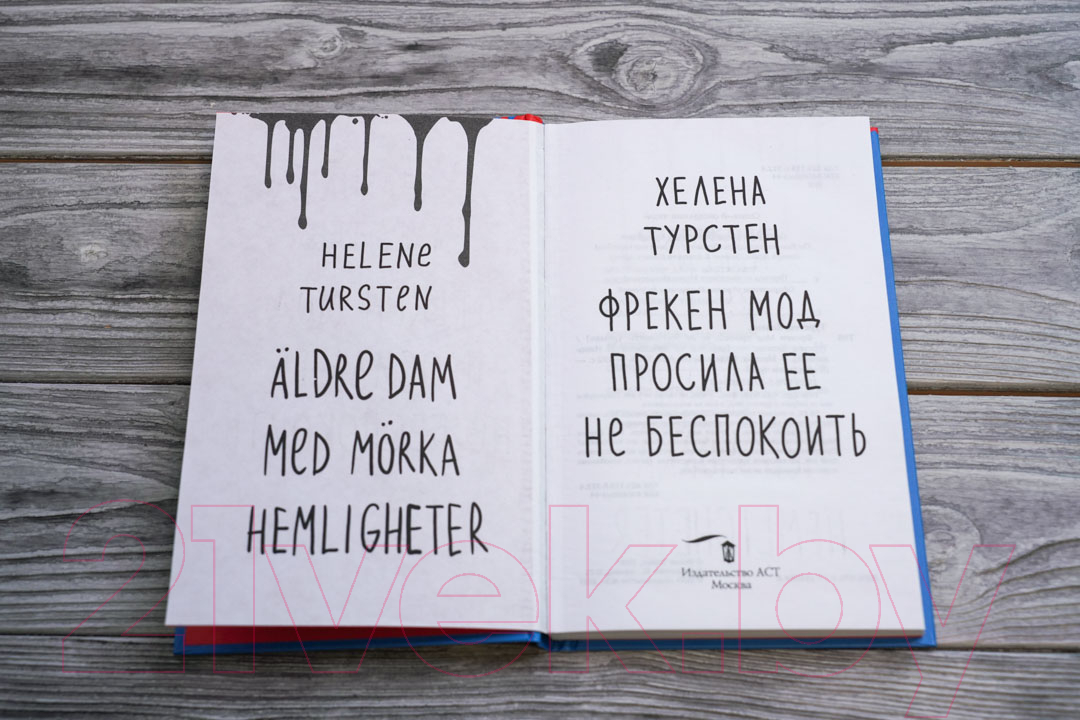 HELENE
TURSTEN
ÄLDRE DAM
MED MÖRKA
HEMLIGHETER
ХЕЛЕНА
ТУРСТЕН
ФРЕКЕН МОД
ПРОСИЛА ЕЕ
НЕ БЕСПОКОИТЬ
Издательство АСТ
Москва
21vek.by